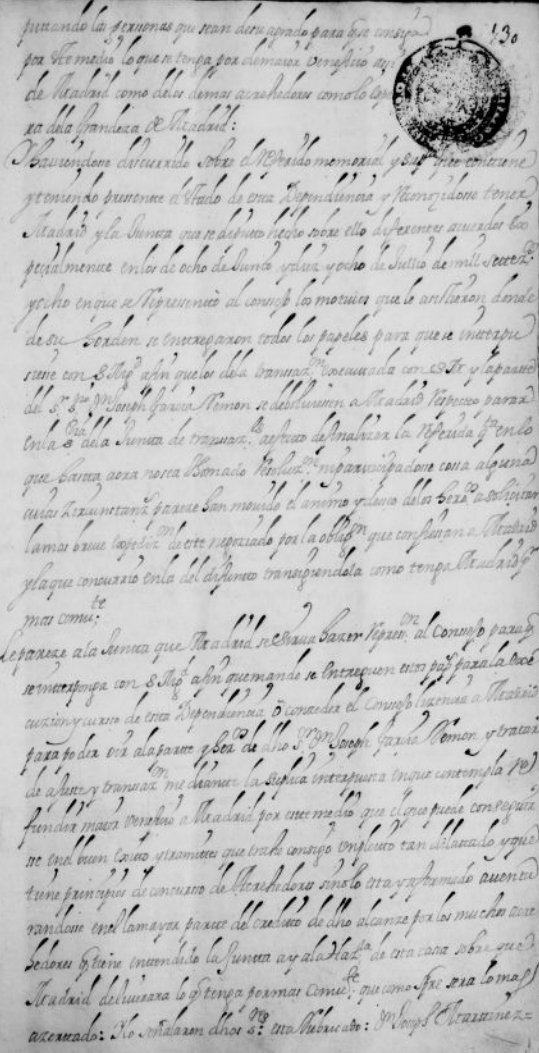 putando las personas que sean de su agrado para q̃ se consiga
por este medio lo que se tenga por de maior beneficio assi 130
de Madrid como de los demas acrehedores como lo espe
ra dela Grandeza de Madrid:
Y haviendose discurrido sobre el referido memorial y que contiene
y teniendo presente el estado de esta Dependiencia y reconozidose tener
Madrid y la Junta que se deputo hecho sobre ello diferentes acuerdos es
pezialmente en los de ocho de Junio y diez y ocho de Jullio de mill setez.ˢ
y ocho en que se represento al consejo los motivos que le asistieron donde
de su horden se entregaron todos los papeles para que se interpu
siese con S Mag.ᵈ a fin que los de la transaz.ⁿ executada con S M y la parte
del s.ʳ Joseph Garcia Remon se debolviesen a Madrid respecto parar
en la de la Junta de transaz.ˢ a efecto de finalizar la referida en lo
que hasta aora no sea thomado resoluz.ⁿ ni participadose cosa alguna
cuias zircunstanz.ˢ pareze han movido el animo y deseo delos hered.ˢ a solicitar
la mas breve expediz.ⁿ de este negoziado por la oblig.ⁿ que confiesan a Madrid
y la que concurrio en la del difunto transigiendola como tenga Madrid p.ʳ
mas comv.ᵗᵉ
Le pareze ala Junta que Madrid se sirva hazer represn.ⁿ al Consejo para q̃
se interponga con S Mag.ᵈ a fin que mande se entreguen estos pap.ˢ para la exe
cuzion y curso de esta Dependiencia o conceder el Consejo lizencia a Madrid
para poder oir ala parte y hered.ˢ de dho s.ʳ Joseph Garcia Remon y tratar
de ajuste y transaz.ⁿ mediante la suplica interpuesta en que contempla re
fundir maior beneficio a Madrid por este medio que el que puede conseguir
se en el buen exito y tramites que trahe consigo un pleito tan dilatado y que
tiene principios de concurso de Acrehedores sino lo esta ya formado aventu
randose en el la mayor parte del credito de dho alcanze por los muchos acre
hedores q̃ tiene entendido la Junta ay ala Haz.ᵈᵃ de esta casa sobre que
Madrid deliverara lo q̃ tenga por mas comv.ᵗᵉ que como spre sera lo mas
azertado: Y lo señalaron dhos s.ʳᵉˢ esta rubricado: D.ⁿ Joseph Martinez=